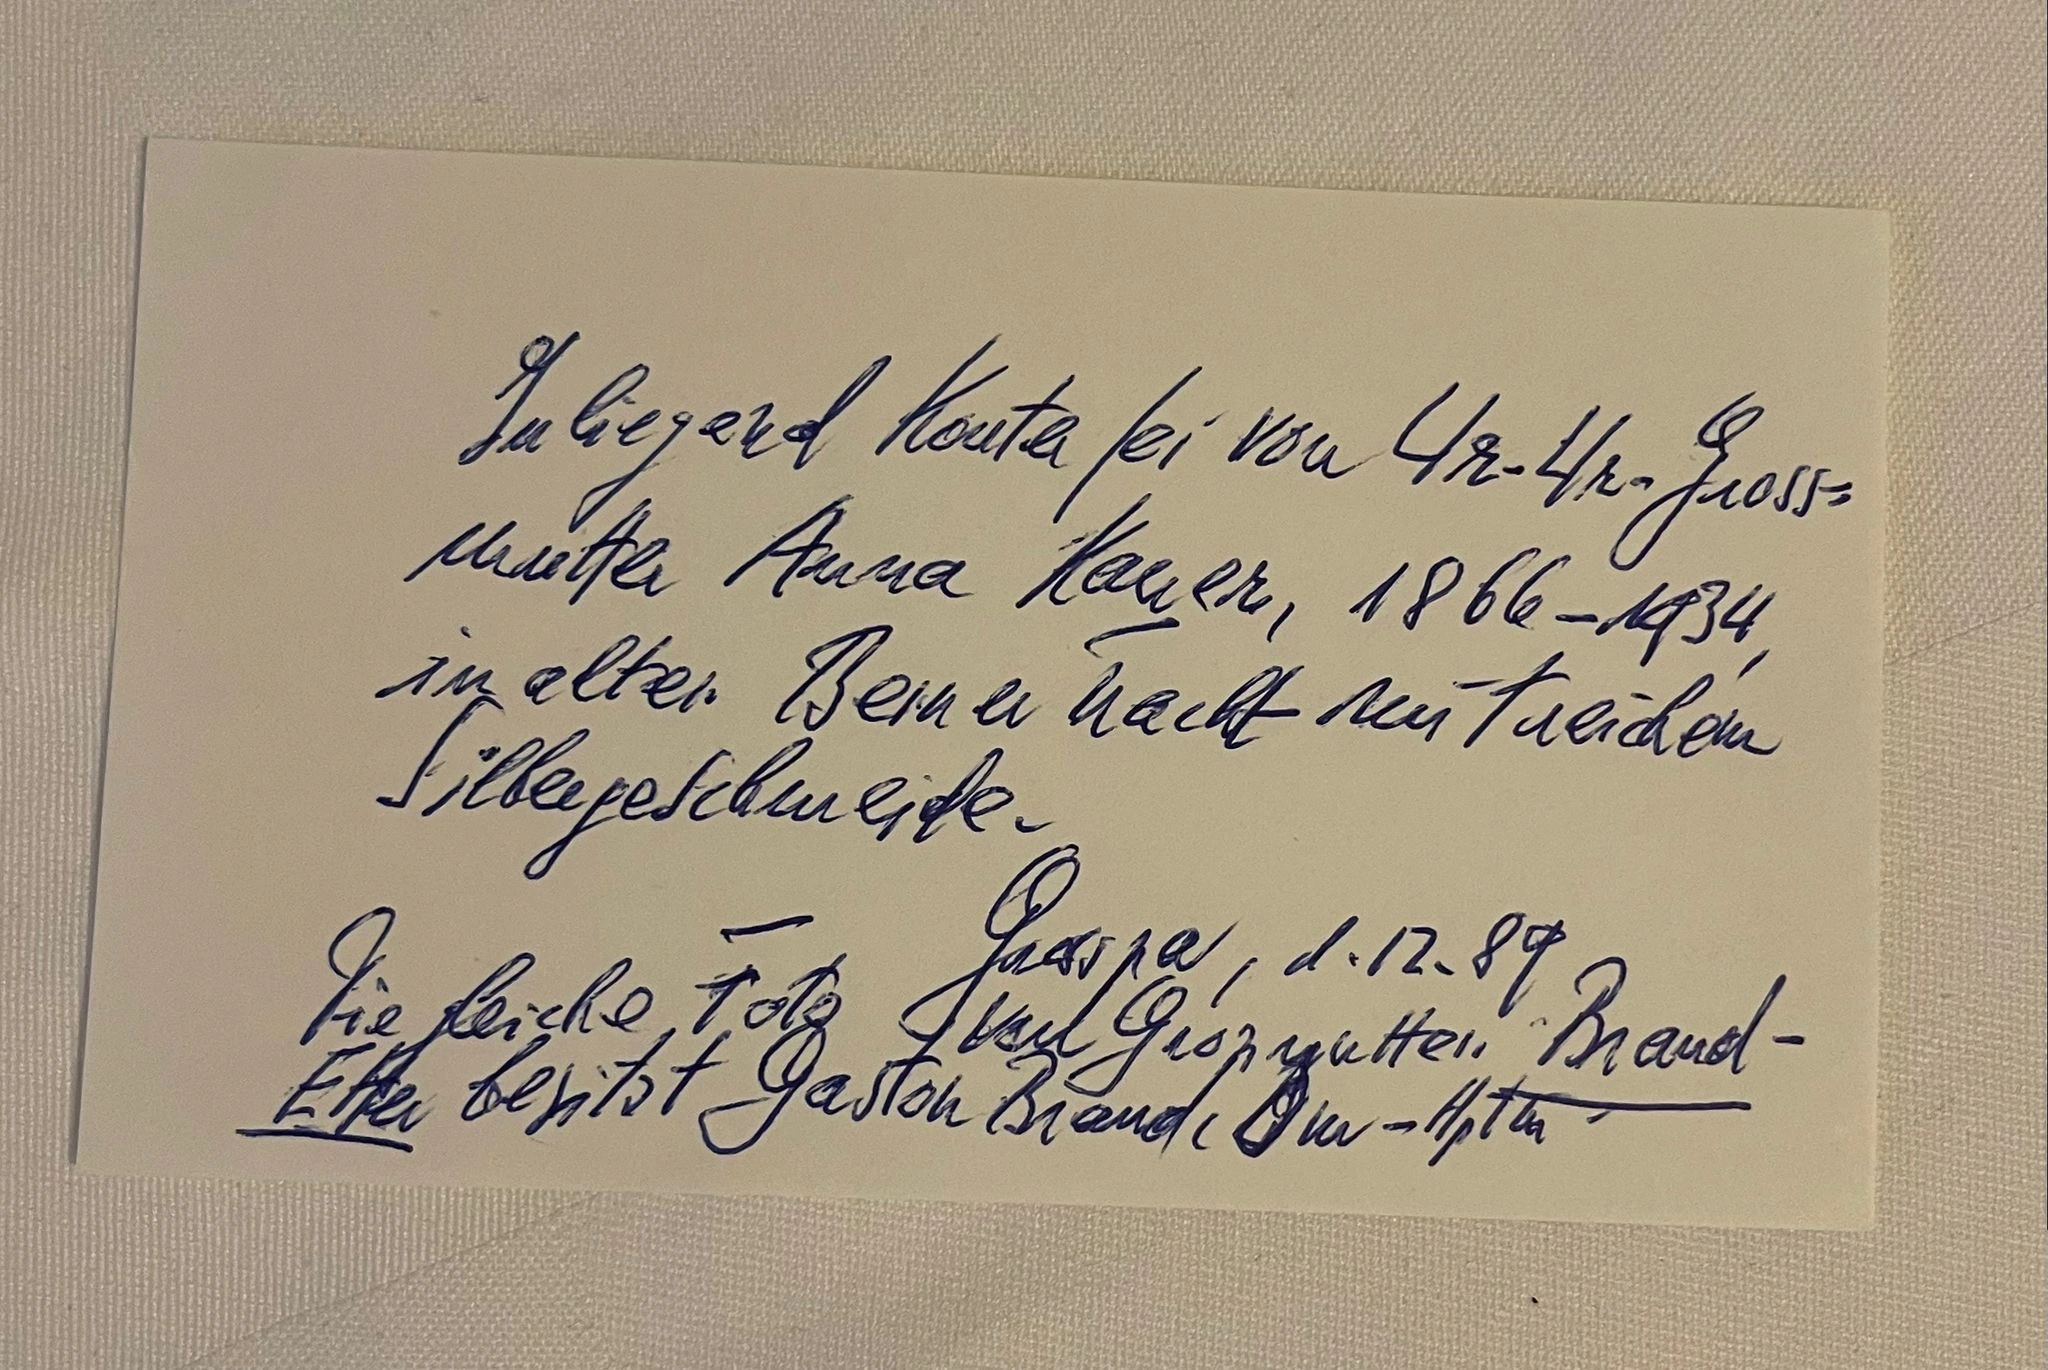 Inliegend Konterfei von Ur-Ur-Gross=
mutter Anna Kauer, 1866-1934,
in alter Berner Tracht mit reichem
Silbergeschmeide.
Grosspa, d. 12. 89
Die gleiche Foto von Grossmutter Brand-
Etter besitzt Gaston Brand,